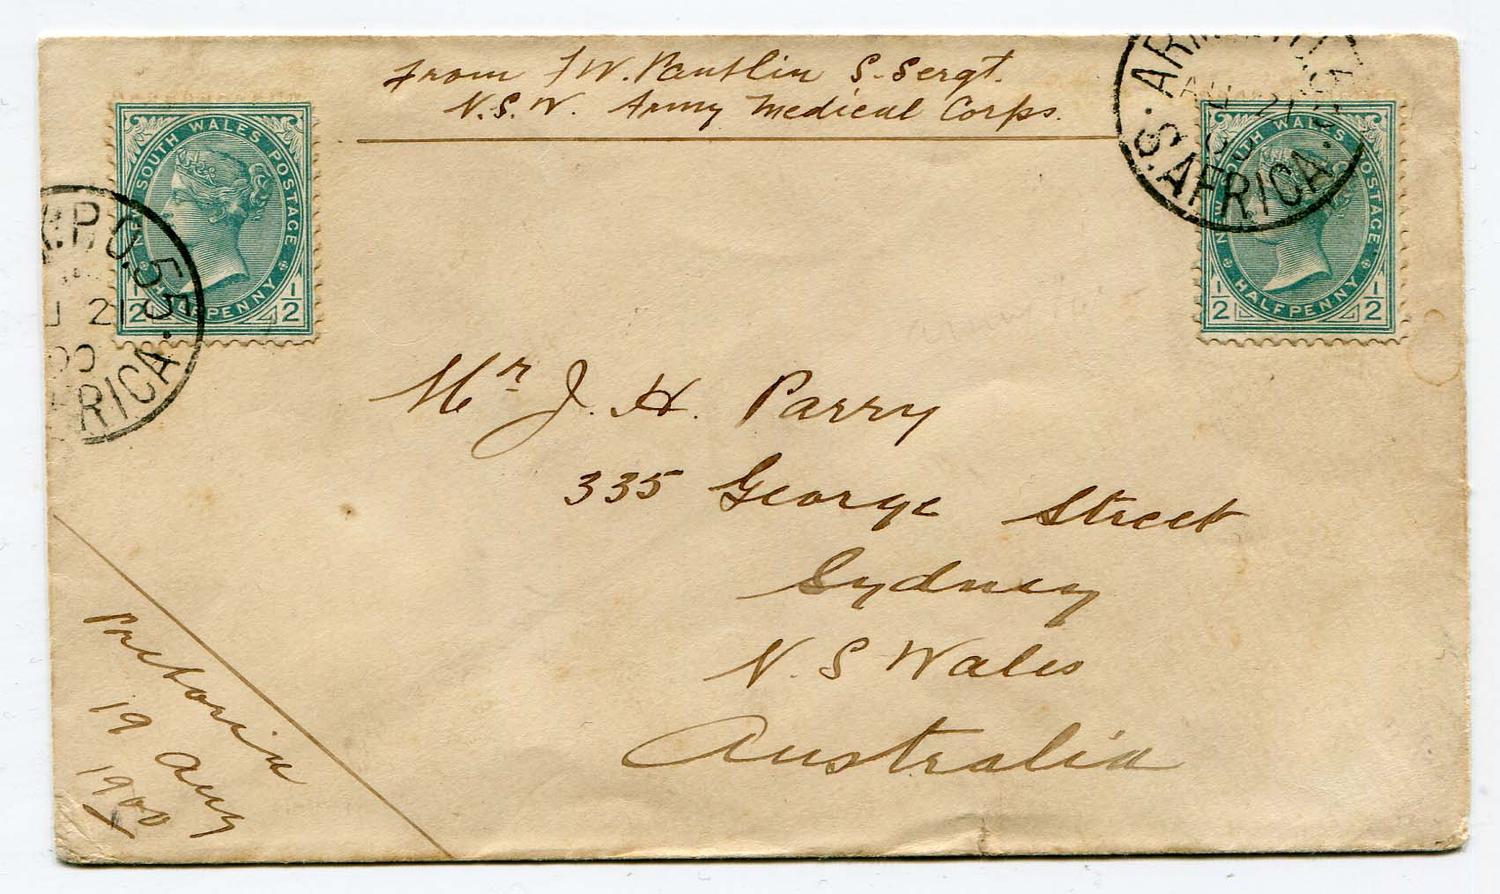 from F W. Pantlin S-Sergt.
N.S.W. Army Medical Corps.
NEW SOUTH WALES POSTAGE
HALFPENNY
1/2 1/2
NEW SOUTH WALES POSTAGE
HALFPENNY
1/2 1/2
A.P.O.55.
U 21
00
AFRICA.
ARM
AU 21
S.AFRICA.
Mr J. H. Parry
335 George Street
Sydney
N. S Wales
Australia
Pretoria
19 Aug
1900